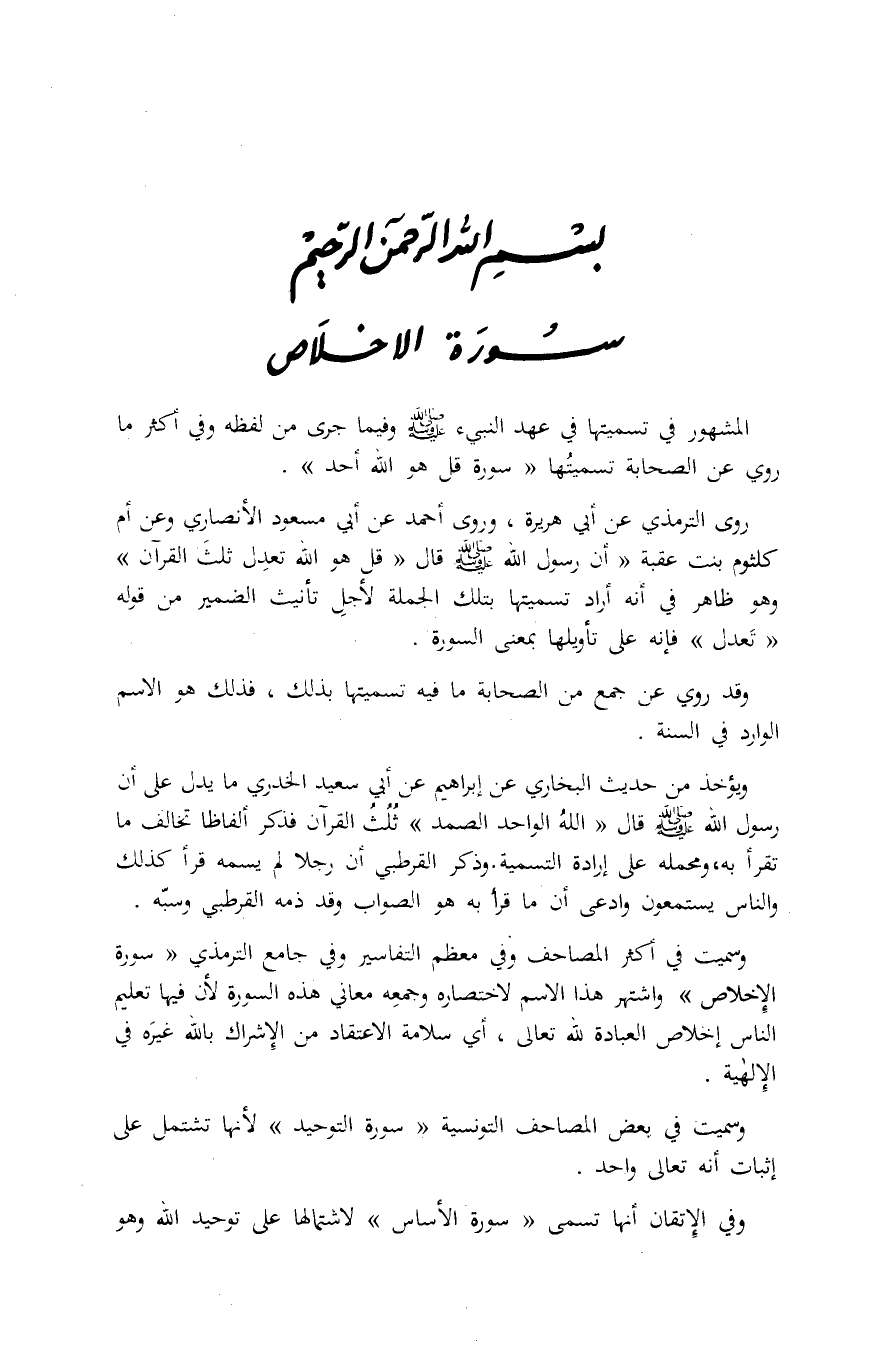 بِسْمِ اللهِ الرَّحْمنِ الرَّحِيمْ
سُورَة الاخْلَاص
المشهور في تسميتها في عهد النبيء ﷺ وفيما جرى من لفظه وفي أكثر ما
روي عن الصحابة تسميتُها « سورة قل هو الله أحد » .
روى الترمذي عن أبي هريرة ، وروى أحمد عن أبي مسعود الأنصاري وعن أم
كلثوم بنت عقبة « أن رسول الله ﷺ قال « قل هو الله تعدِل ثلثَ القرآن »
وهو ظاهر في أنه أراد تسميتها بتلك الجملة لأجلِ تأنيث الضمير من قوله
« تَعدل » فإنه على تأويلها بمعنى السورة .
وقد روي عن جمع من الصحابة ما فيه تسميتها بذلك ، فذلك هو الاسم
الوارد في السنة .
ويؤخذ من حديث البخاري عن إبراهيم عن أبي سعيد الخدري ما يدل على أن
رسول الله ﷺ قال « اللهُ الواحد الصمد » ثُلُثُ القرآن فذكر ألفاظا تخالف ما
تقرأ به، ومحمله على إرادة التسمية. وذكر القرطبي أن رجلا لم يسمه قرأ كذلك
والناس يستمعون وادعى أن ما قرأ به هو الصواب وقد ذمه القرطبي وسبّه .
وسميت في أكثر المصاحف وفي معظم التفاسير وفي جامع الترمذي « سورة
الإخلاص » واشتهر هذا الاسم لاختصاره وجمعِه معاني هذه السورة لأن فيها تعليم
الناس إخلاص العبادة لله تعالى ، أي سلامة الاعتقاد من الإشراك بالله غيرَه في
الإلهية .
وسميت في بعض المصاحف التونسية « سورة التوحيد » لأنها تشتمل على
إثبات أنه تعالى واحد .
وفي الإتقان أنها تسمى « سورة الأساس » لاشتمالها على توحيد الله وهو